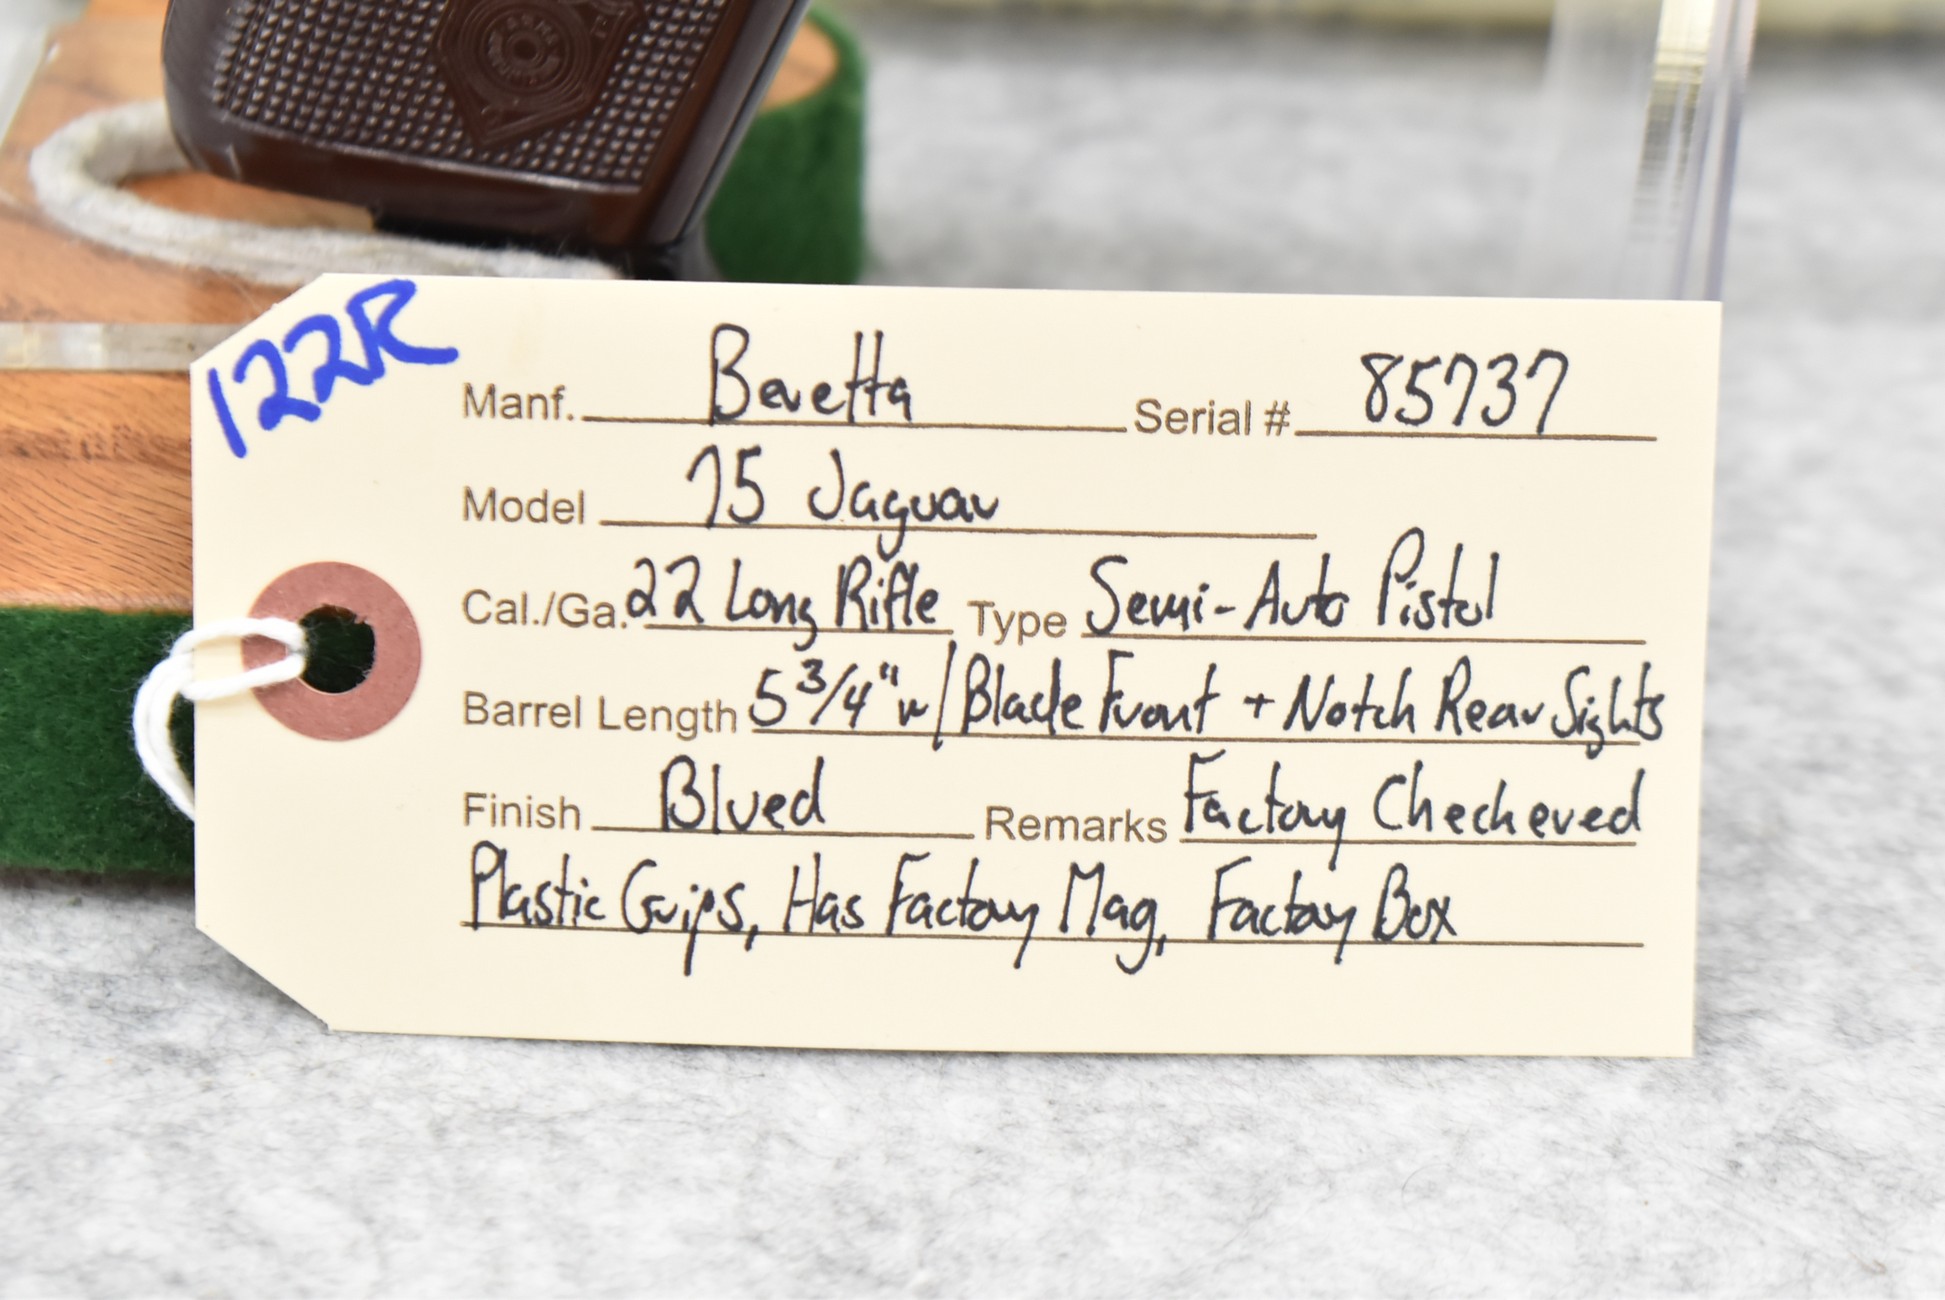 122R
Manf. Beretta Serial # 85737
Model 75 Jaguar
Cal./Ga. 22 Long Rifle Type Semi-Auto Pistol
Barrel Length 5 3/4" w/ Blade Front + Notch Rear Sights
Finish Blued Remarks Factory Checkered
Plastic Grips, Has Factory Mag, Factory Box